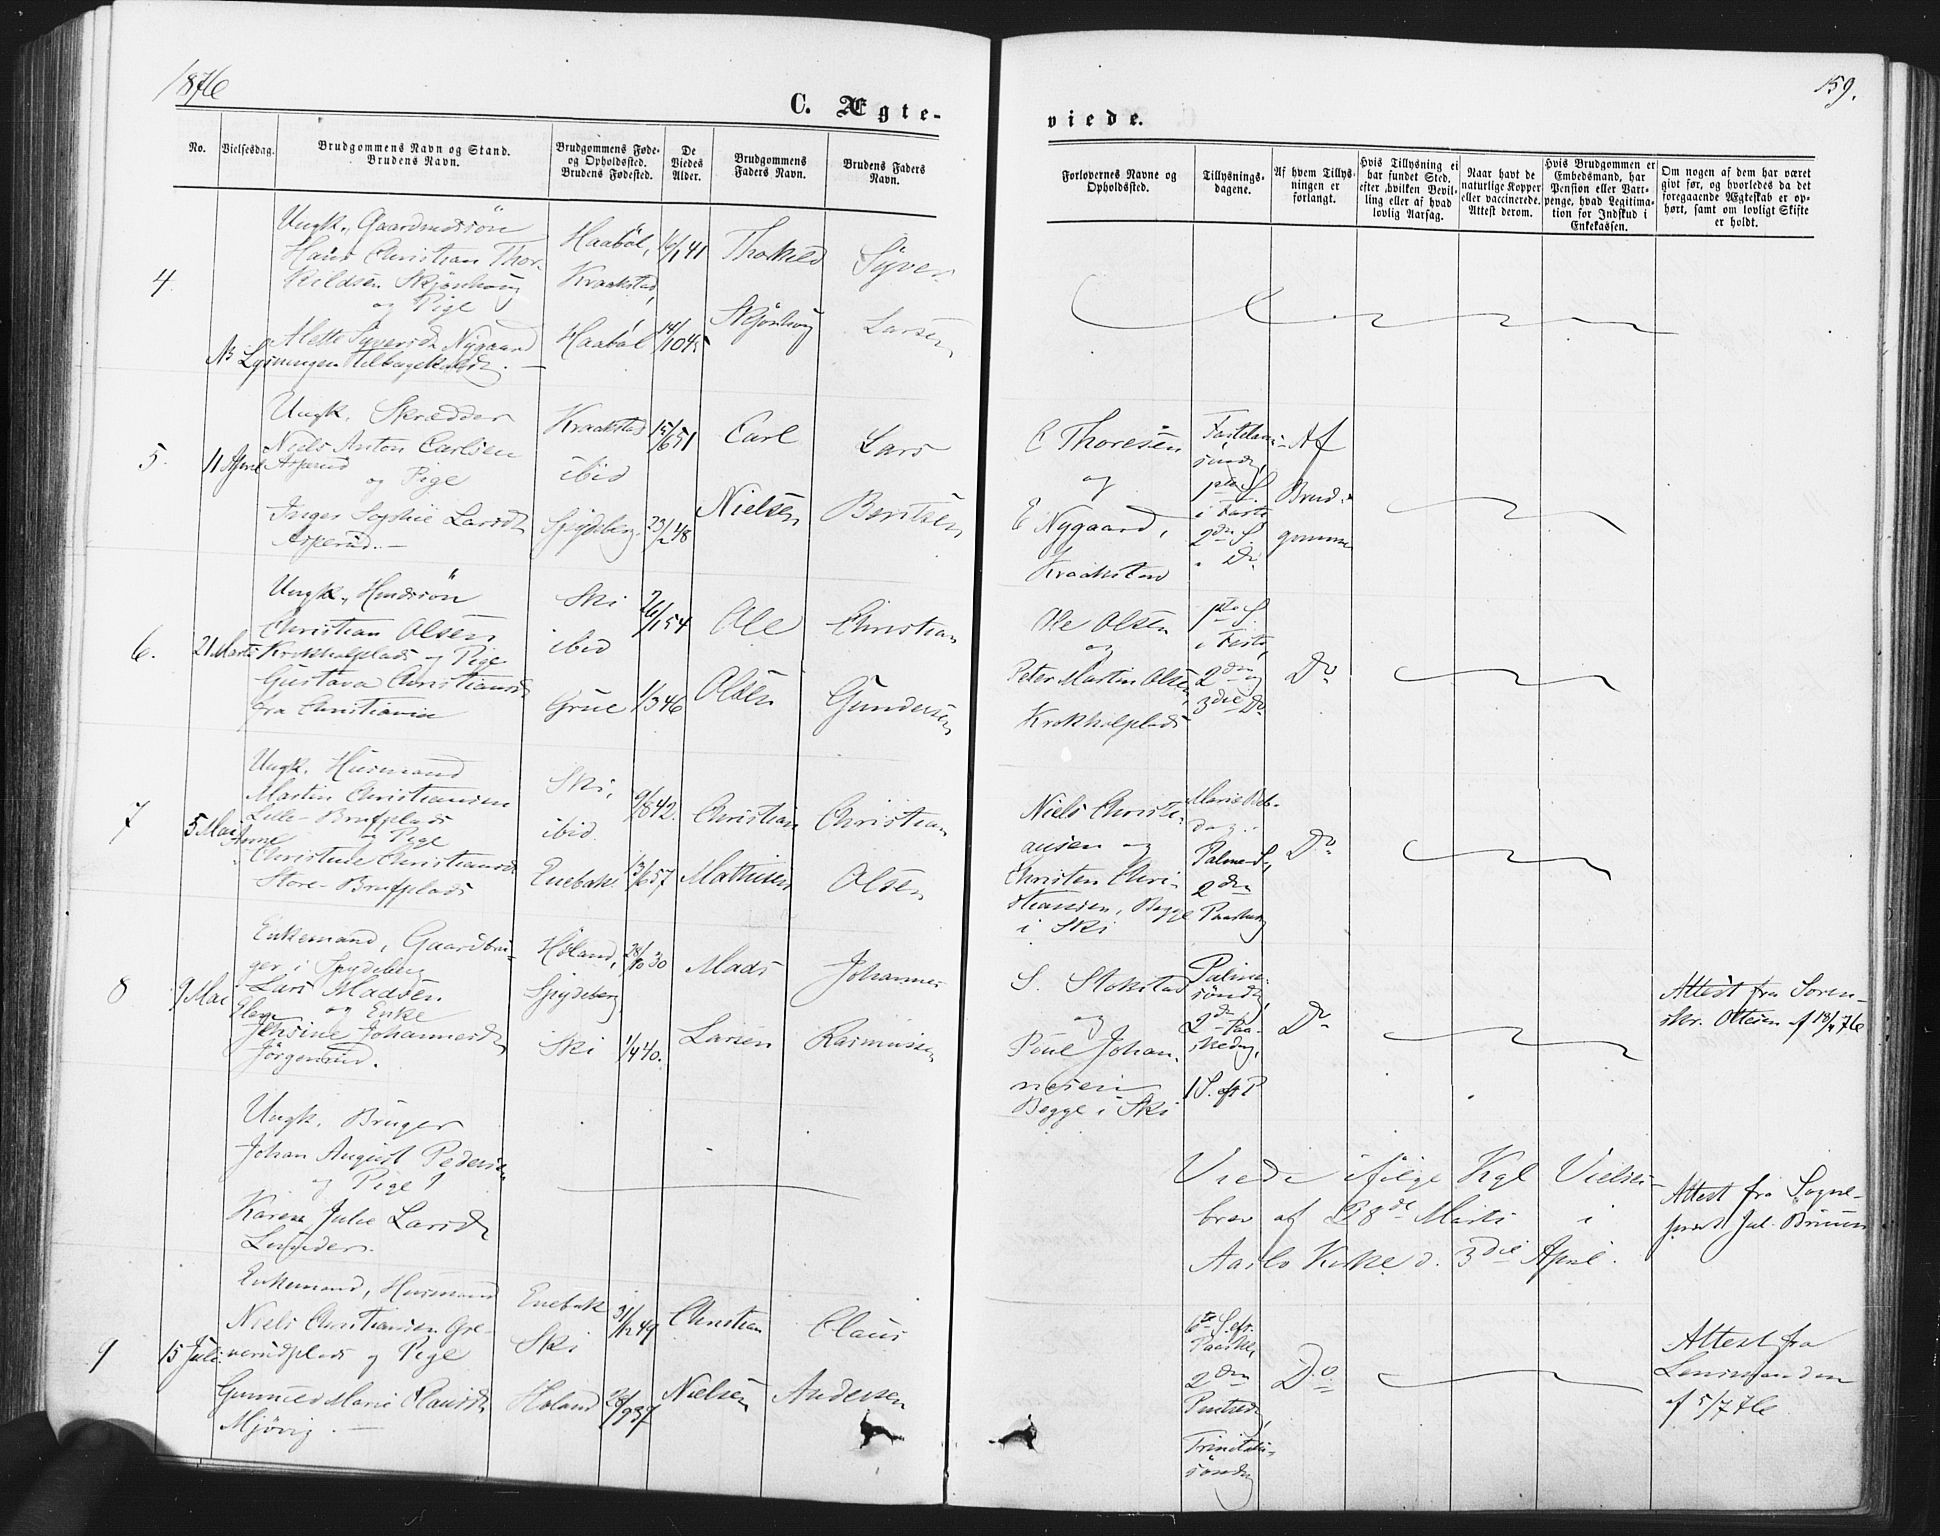 1876
159.
C. Ægte-
viede.
No.
Vielsesdag.
Brudgommens Navn og Stand.
Brudens Navn.
Brudgommens Føde-
og Opholdssted.
Brudens Fødested.
De
Viedes
Alder.
Brudgommens
Faders Navn.
Brudens Faders
Navn.
Forlovernes Navne og
Opholdssted.
Tillysnings-
dagene.
Af hvem Tillys-
ningen er
forlangt.
Hvis Tillysning ei
har fundet Sted,
efter hvilken Bevil-
ling eller af hvad
lovlig Aarsag.
Naar havt de
naturlige Kopper
eller vaccinerede.
Attest derom.
Hvis Brudgommen er
Embedsmand, har
Pension eller Vart-
penge, hvad Legitima-
tion for Indskud i
Enkekassen.
Om nogen af dem har været
givt før, og hvorledes da det
foregaaende Ægteskab er op-
hørt, samt om lovligt Skifte
er holdt.
4.
Ungk., Gaardmdssön
Hans Christian Thor-
kildsen Skjönhoug
og Pige
Alette Syversd. Nygaard
NB Lysningen tilbagekaldt. —
Haaböl,
Kraakstad,
Haaböl
16/1 41
14/10 45
Thorkild
Skjönhoug
Syver
Larsen
5.
11 April
Ungk. Skrædder
Niels Anton Carlsen
Asperud
og Pige
Inger Sophie Larsdt
Asperud. —
Kraakstad
ibid
Spydeberg.
15/6 51
23/2 48
Carl
Nielsen
Lars
Berntsen
C Thoresen
og
E Nygaard,
Kraakstad
Fastelavns
sönd,
1ste S.
i Faste
2den S.
i Do
Af
Brud-
gommen
6.
21 Marts
Ungk., Hmdssön
Christian Olsen
Krokholplads og Pige
Gustava Christiansd
fra Christiania
Ski
ibid
Grue
26/1 54
1/3 46
Ole
Olsen
Christian
Gundersen
Ole Olsen
og
Peter Martin Olsen,
Krokholplads
1ste S.
i Faste,
2den og
3die Do
Do
7
5 Mai
Ungk. Husmand
Martin Christiansen
Lille- Brufplads
og Pige
Anne
Christine Christiansdt
Store- Brufplads
Ski,
ibid.
Enebak.
9/8 42.
13/6 57
Christian
Mathisen
Christian
Olsen
Niels Christi-
ansen og
Christen Chri-
stiansen, Begge
i Ski
Mariæ Beb.
dag.
Palme-S,
2den
Paaskedag
Do
8
9 Mai
Enkemand, Gaardbru-
ger i Spydeberg
Lars Madsen
og Enke
Elen
Jensine Johannesdt
Jörgensrud.
Höland,
Spydeberg,
Ski
28/10 30
1/4 40.
Mads
Larsen
Johannes
Rasmussen
S. Stokstad
og
Poul Johan-
nesen
Begge i Ski
Palme-
sönd,
2den Paa-
skedag,
1 S. eft P
Do
Attest fra Soren-
skr. Ottesen af 18/4 76
Ungk. Bruger
Johan August Pedersen
og Pige
Karen Julie Larsdt
Lunder.
Viede ifölge Kgl Vielses-
brev af 28de Marts i
Aaslo Kirke d. 3die April.
Attest fra Sogne-
præst Jul. Bruun
9
15 Juli
Enkemand, Husmand
Niels Christiansen Gre-
verudplads og Pige
Gunnild Marie Clausdt
Mjövig. —
Enebak
Ski
Höland
31/12 49
26/9 37
Christian
Nielsen
Claus
Andersen
6te S. eft.
Paaske,
2den
Pintsedg,
Trinitatis-
söndag
Do
Attest fra
Lensmanden
af 5/7 76